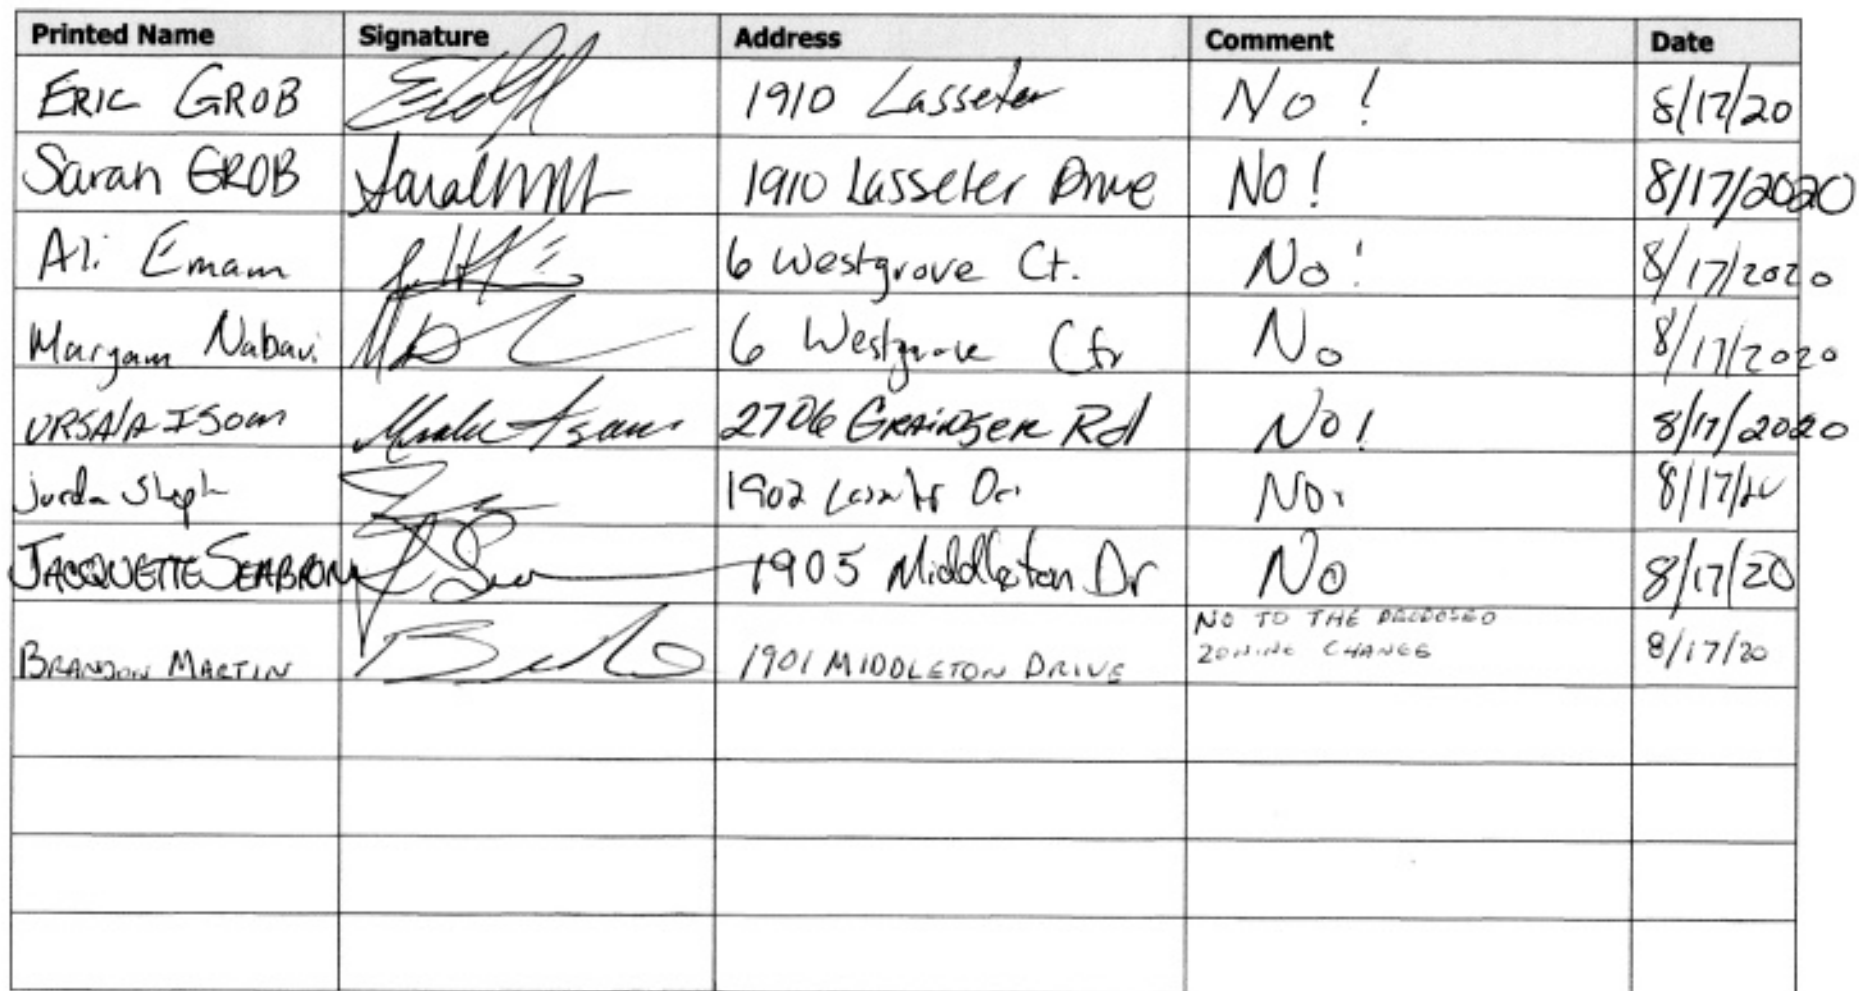 Printed Name Signature Address Comment Date
ERIC GROB 1910 Lasseter No! 8/17/20
Sarah GROB 1910 Lasseter Drive NO! 8/17/2020
Ali Emam 6 Westgrove Ct. No! 8/17/2020
Maryam Nabavi 6 Westgrove No 8/17/2020
URSAlA ISom 2706 GRAINGER Rd No! 8/17/2020
1902 No. 8/17/20
JACQUETTE SEABRON 1905 Middleton Dr No 8/17/20
BRANDON MARTIN 1901 MIDDLETON DRIVE NO TO THE PROPOSED
ZONING CHANGE 8/17/20